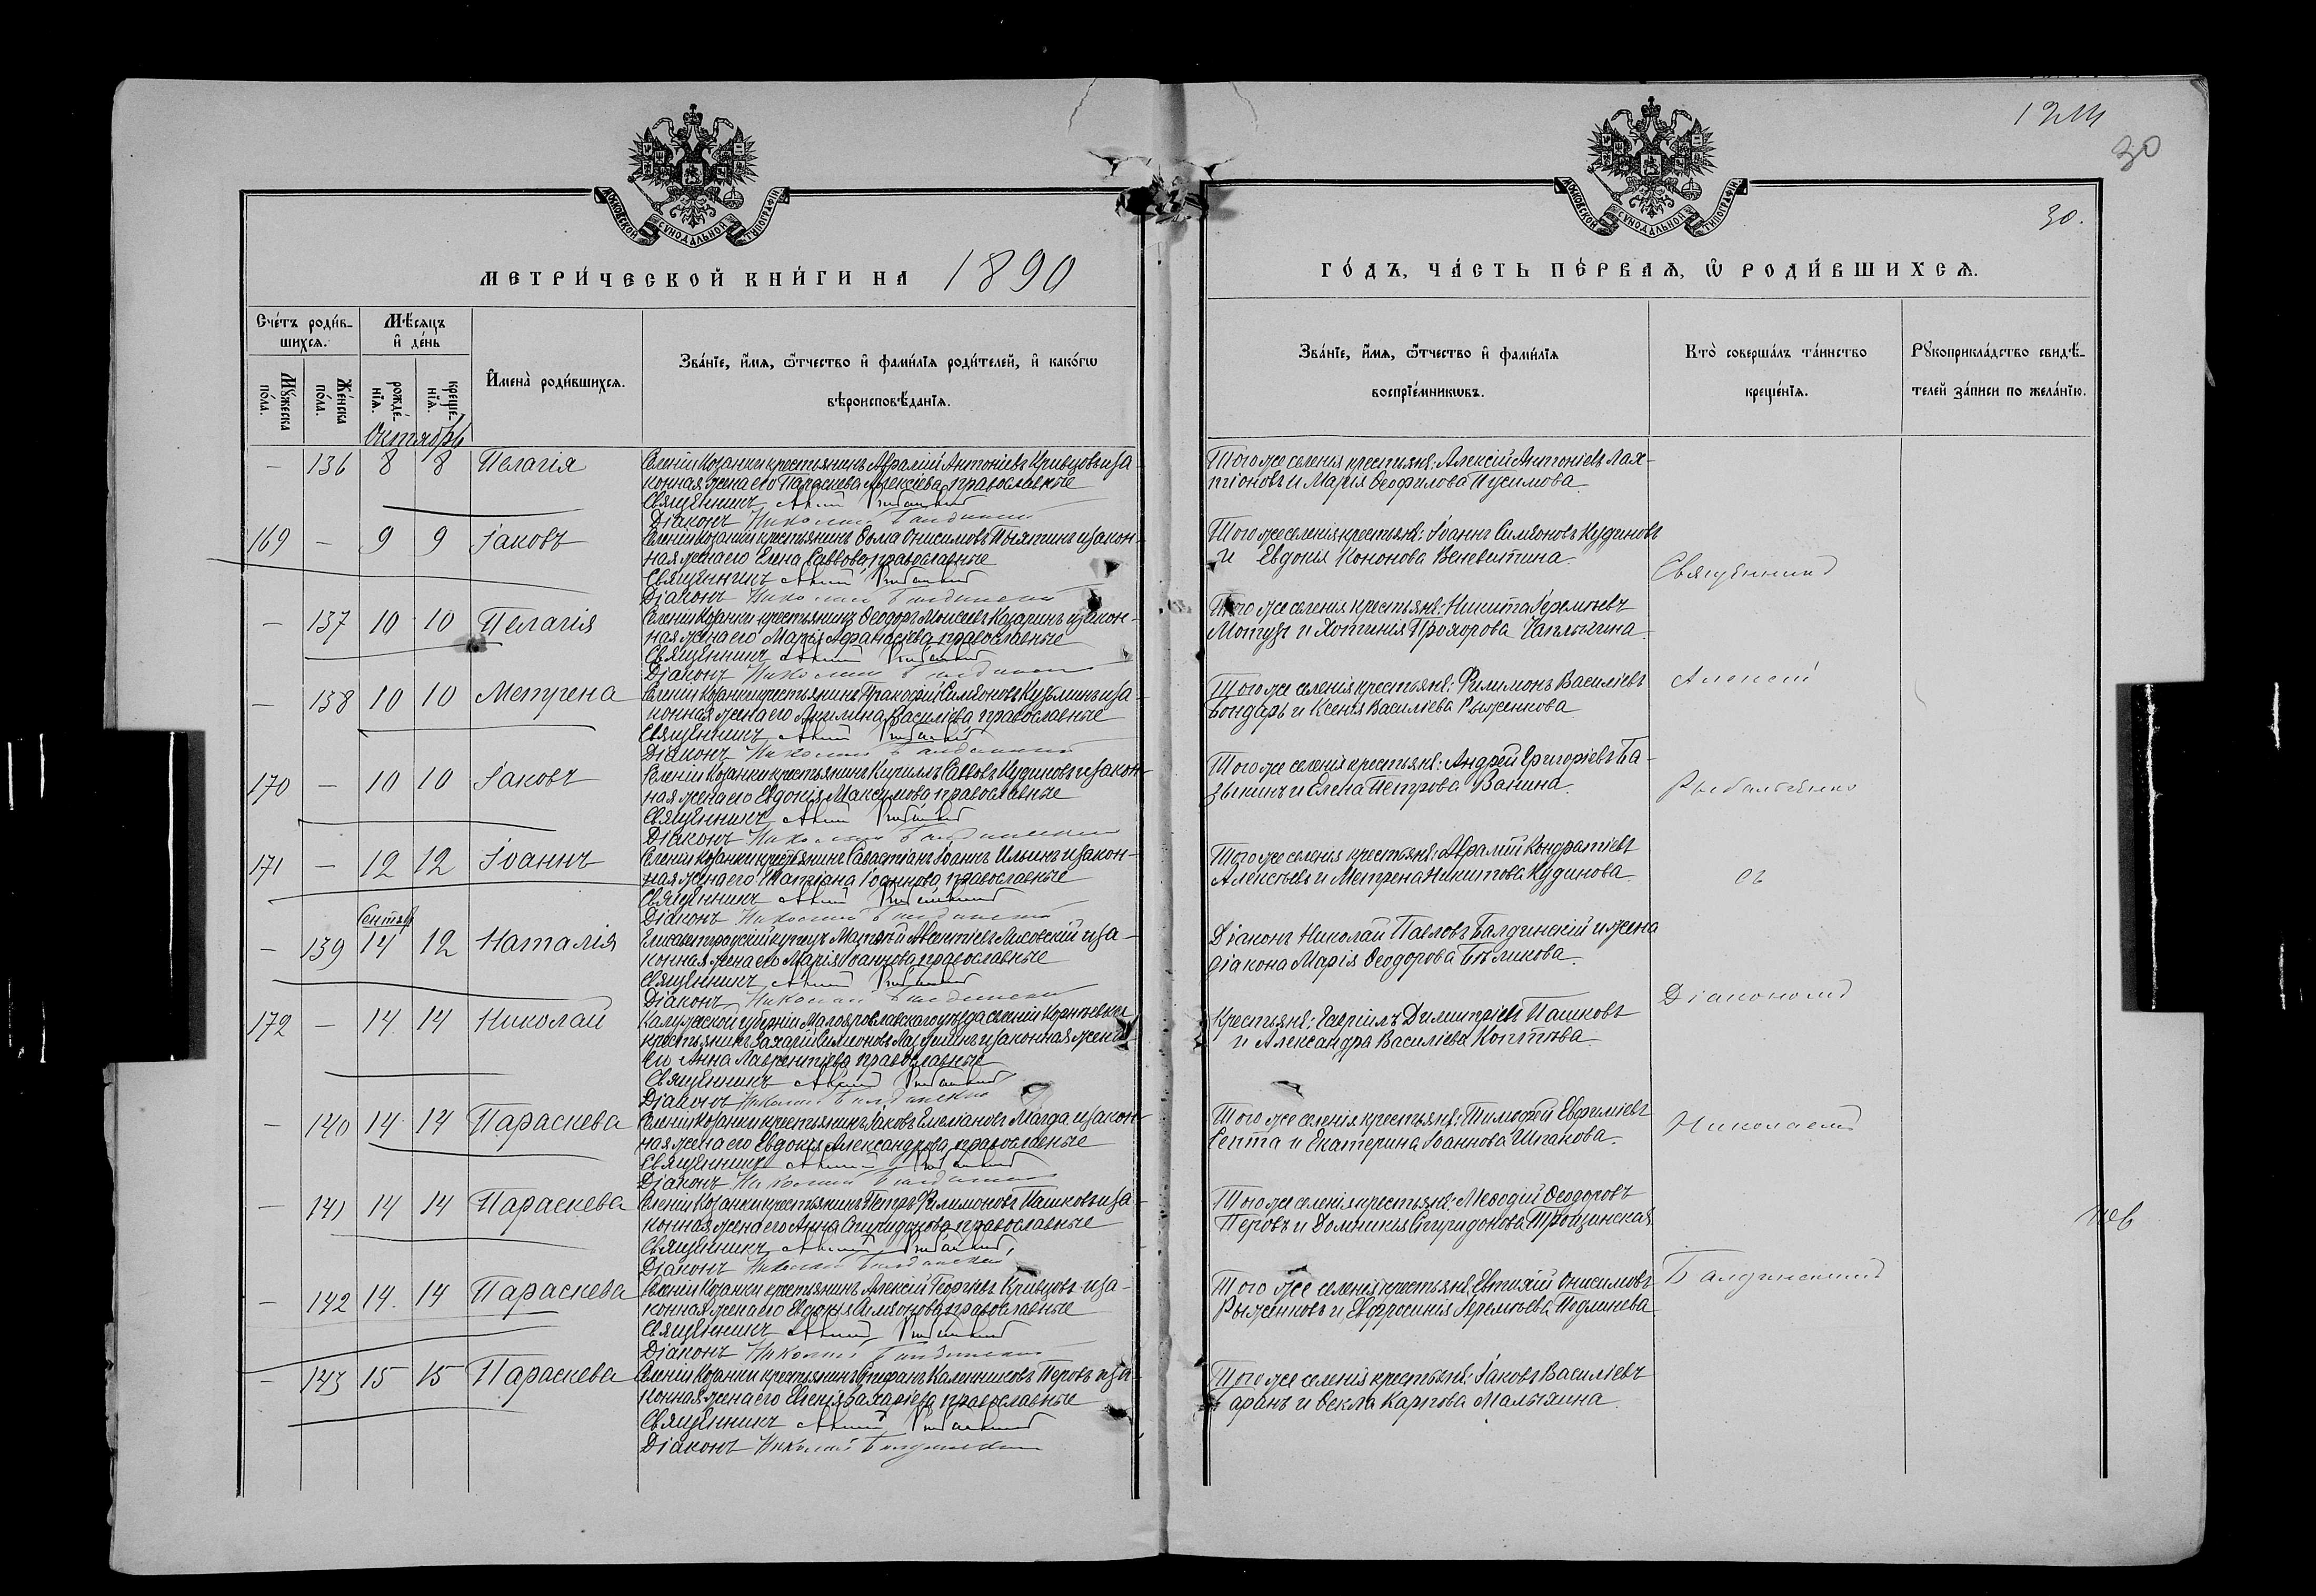 МОСКОВСКОЙ СУНОДАЛЬНОЙ ТИПОГРАФІИ
МЕТРИ́ЧЕСКОЙ КНИ́ГИ НА 1890
Сче́тъ роди́в-
шихсѧ.
Мѣ́сѧцъ
и҆ де́нь
Мꙋ́жеска
по́ла.
Же́нска
по́ла.
рожде́-
нїѧ.
креще́-
нїѧ.
И҆мена̀ роди́вшихсѧ.
Зва́нїе, и҆́мѧ, ѻ҆́тчество и҆ фами́лїѧ роди́телей, и҆ како́гѡ
вѣроисповѣ́данїѧ.
Октябрь
— 136 8 8 Пелагія
Селенія Козанки крестьянинъ Авраамій Антоніевъ Кривцовъ и за-
конная жена его Параскева Алексіева, православные
Священникъ
Діаконъ Николай Балдинскій
169 — 9 9 Іаковъ
Селенія Козанки крестьянинъ Ѳома Онисимовъ и закон-
ная жена его Елена Саввова, православные
Священникъ
Діаконъ Николай Балдинскій
— 137 10 10 Пелагія
Селенія Козанки крестьянинъ Ѳеодоръ Моисеевъ Казаринъ и закон-
ная жена его Марія Аѳанасіева, православные
Священникъ
Діаконъ Николай Балдинскій
— 138 10 10 Метрена
Селенія Козанки крестьянинъ Прокофій Симеоновъ Кузьминъ и за-
конная жена его Акилина Василіева, православные
Священникъ
Діаконъ Николай Балдинскій
170 — 10 10 Іаковъ
Селенія Козанки крестьянинъ Кириллъ Саввовъ Кудиновъ и закон-
ная жена его Евдокія Максимова, православные
Священникъ
Діаконъ Николай Балдинскій
171 — 12 12 Іоаннъ
Селенія Козанки крестьянинъ Іоаннъ Ильинъ и закон-
ная жена его Іоаннова, православные
Священникъ
Діаконъ Николай Балдинскій
Сентяб
— 139 14 12 Наталія
Елисаветградскій купецъ Матѳей Лисовскій и за-
конная жена его Марія Іоаннова, православные
Священникъ
Діаконъ Николай Балдинскій
172 — 14 14 Николай
Калужской губерніи Малоярославскаго уѣзда селенія
крестьянинъ Захарій Симеоновъ и законная жена
его Анна Лаврентіева, православные
Священникъ
Діаконъ Николай Балдинскій
— 140 14 14 Параскева
Селенія Козанки крестьянинъ Іаковъ Емеліановъ Магда и закон-
ная жена его Евдокія Александрова, православные
Священникъ
Діаконъ Николай Балдинскій
— 141 14 14 Параскева
Селенія Козанки крестьянинъ Петръ Филимоновъ Пашковъ и за-
конная жена его Анна Спиридонова, православные
Священникъ
Діаконъ Николай Балдинскій
— 142 14 14 Параскева
Селенія Козанки крестьянинъ Алексій Георгіевъ Кривцовъ и за-
конная жена его Евдокія Симеонова, православные
Священникъ
Діаконъ Николай Балдинскій
— 143 15 15 Параскева
Селенія Козанки крестьянинъ Стефанъ Калинниковъ Перовъ и за-
конная жена его Евгенія Захаріева, православные
Священникъ
Діаконъ Николай Балдинскій
30
30.
МОСКОВСКОЙ СУНОДАЛЬНОЙ ТИПОГРАФІИ
ГО́ДЪ, ЧА́СТЬ ПЕ́РВАѦ, Ѡ҆ РОДИ́ВШИХСѦ.
Зва́нїе, и҆́мѧ, ѻ҆́тчество и҆ фами́лїѧ
воспрїе́мникѡвъ.
Кто̀ соверша́лъ та́инство
креще́нїѧ.
Рꙋкоприкла́дство свидѣ́-
телей за́писи по жела́нїю.
Того же селенія крестьяне: Алексій Антоніевъ Лах-
тіоновъ и Марія Ѳеофилова
Того же селенія крестьяне: Іоаннъ Симеоновъ Кудиновъ
и Евдокія Кононова Веневитина.
Того же селенія крестьяне: Никита Іереміевъ
Мотузъ и Хотинія Прохорова Чаплыгина.
Того же селенія крестьяне: Филимонъ Василіевъ
Бондарь и Ксенія Василіева Рыженкова.
Того же селенія крестьяне: Андрей Григоріевъ Ба-
зыкинъ и Елена Петрова Ванина.
Того же селенія крестьяне: Авраамій Кондратіевъ
Алексѣевъ и Метрена Никитова Кудинова.
Діаконъ Николай Павловъ Балдинскій и жена
діакона Марія Ѳеодорова Бѣликова.
Крестьяне: Гавріилъ Димитріевъ Пашковъ
и Александра Василіева Коптѣва.
Того же селенія крестьяне: Тимоѳей Евфиміевъ
Септа и Екатерина Іоаннова
Того же селенія крестьяне: Меѳодій Ѳеодоровъ
Перовъ и Домникія Спиридонова Трощинская.
Того же селенія крестьяне: Евтихій Онисимовъ
Рыженковъ и Евфросинія Іереміева
Того же селенія крестьяне: Іаковъ Василіевъ
Таранъ и Ѳекла Карпова Малыхина.
Священникъ
Алексій
Рыбальченко
съ
Діакономъ
Николаемъ
Балдинскимъ